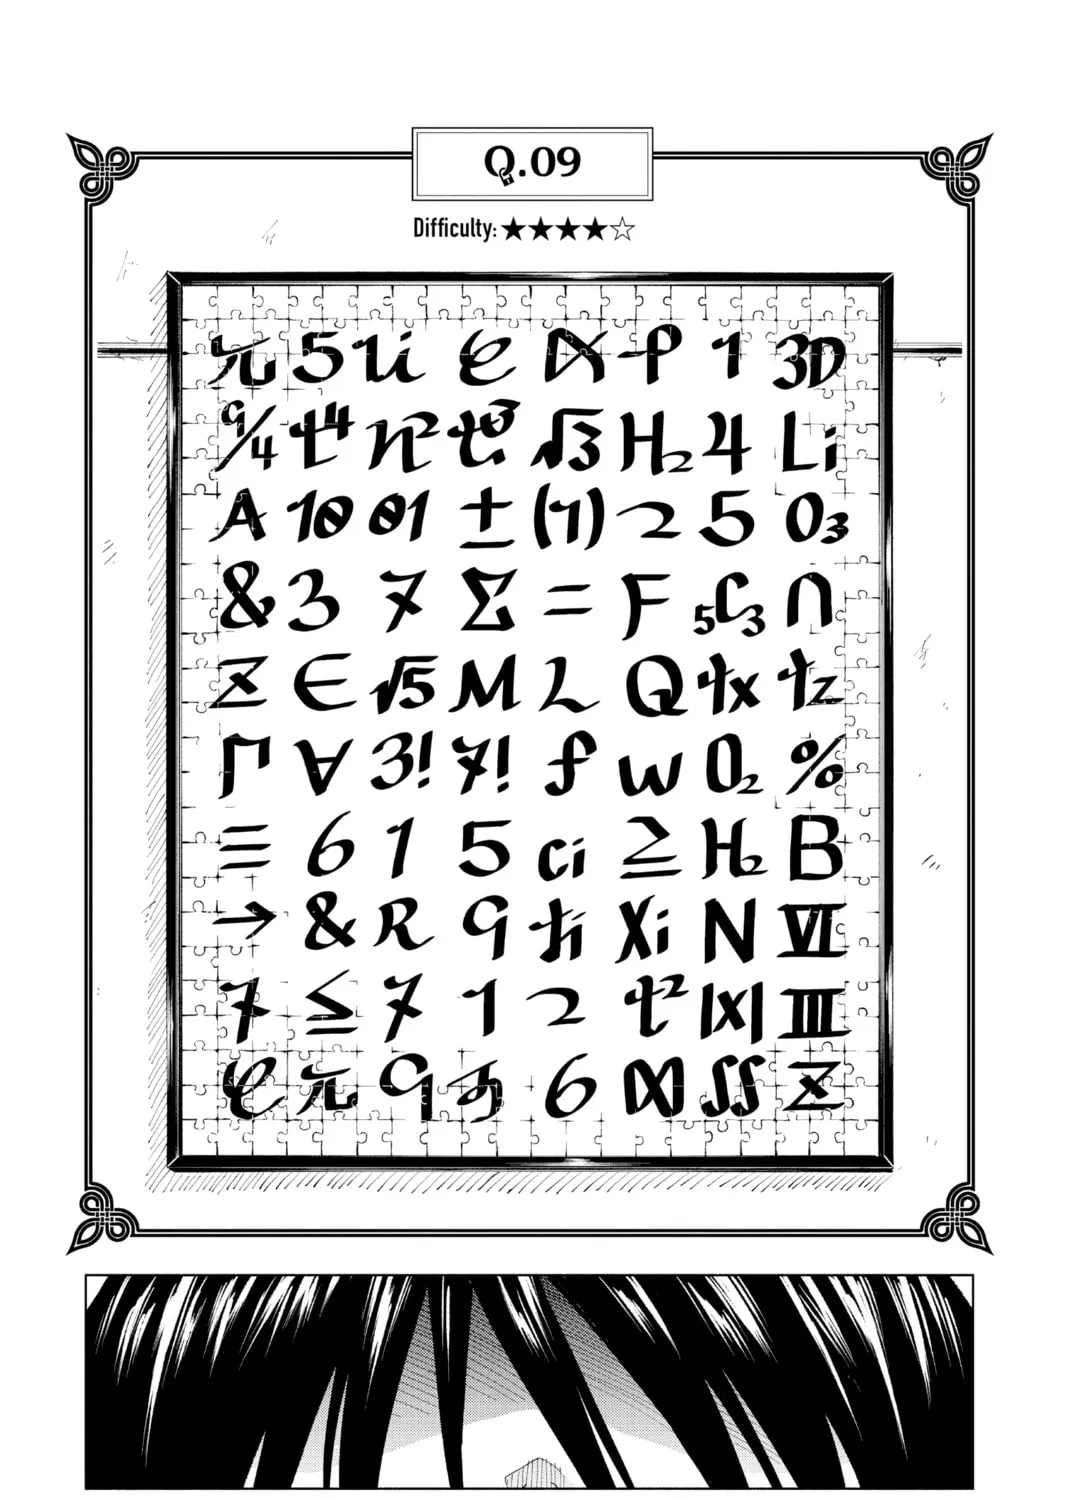 Q.09
Difficulty: ★★★★☆
元 5 Ui e α p 1 3D
9/4 t⁴ n² √3 H₂ 4 Li
A 10 01 ± (1) 2 5 O₃
& 3 7 Σ = F ₅C₃ ∩
Z ∈ √5 M L Q tx tz
Γ ∀ 3! 7! f w O₂ %
≡ 6 1 5 Ci ≥ H₂ B
→ & R 9 Xi N VI
7 ≤ 7 1 2 t² |x| III
e 元 9 あ 6 ∝ ∬ Z